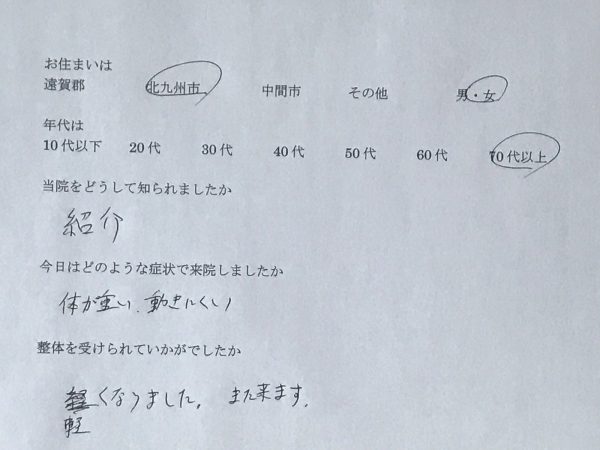 お住まいは
遠賀郡 北九州市 中間市 その他 男・女
年代は
10代以下 20代 30代 40代 50代 60代 70代以上
当院をどうして知られましたか
紹介
今日はどのような症状で来院しましたか
体が重い、動きにくい
整体を受けられていかがでしたか
軽くなりました。また来ます。
軽